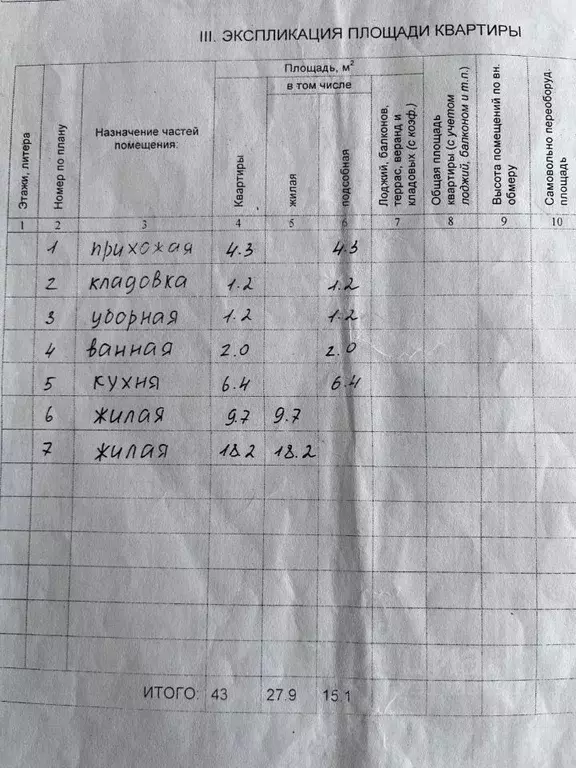 III. ЭКСПЛИКАЦИЯ ПЛОЩАДИ КВАРТИРЫ
Этажи, литера
Номер по плану
Назначение частей
помещения:
Площадь, м²
в том числе
Квартиры
жилая
подсобная
Лоджий, балконов,
террас, веранд и
кладовых (с коэф.)
Общая площадь
квартиры (с учетом
лоджий, балконом и т.п.)
Высота помещений по вн.
обмеру
Самовольно переоборуд.
площадь
1 2 3 4 5 6 7 8 9 10
1 прихожая 4.3 4.3
2 кладовка 1.2 1.2
3 уборная 1.2 1.2
4 ванная 2.0 2.0
5 кухня 6.4 6.4
6 жилая 9.7 9.7
7 жилая 18.2 18.2
ИТОГО: 43 27.9 15.1